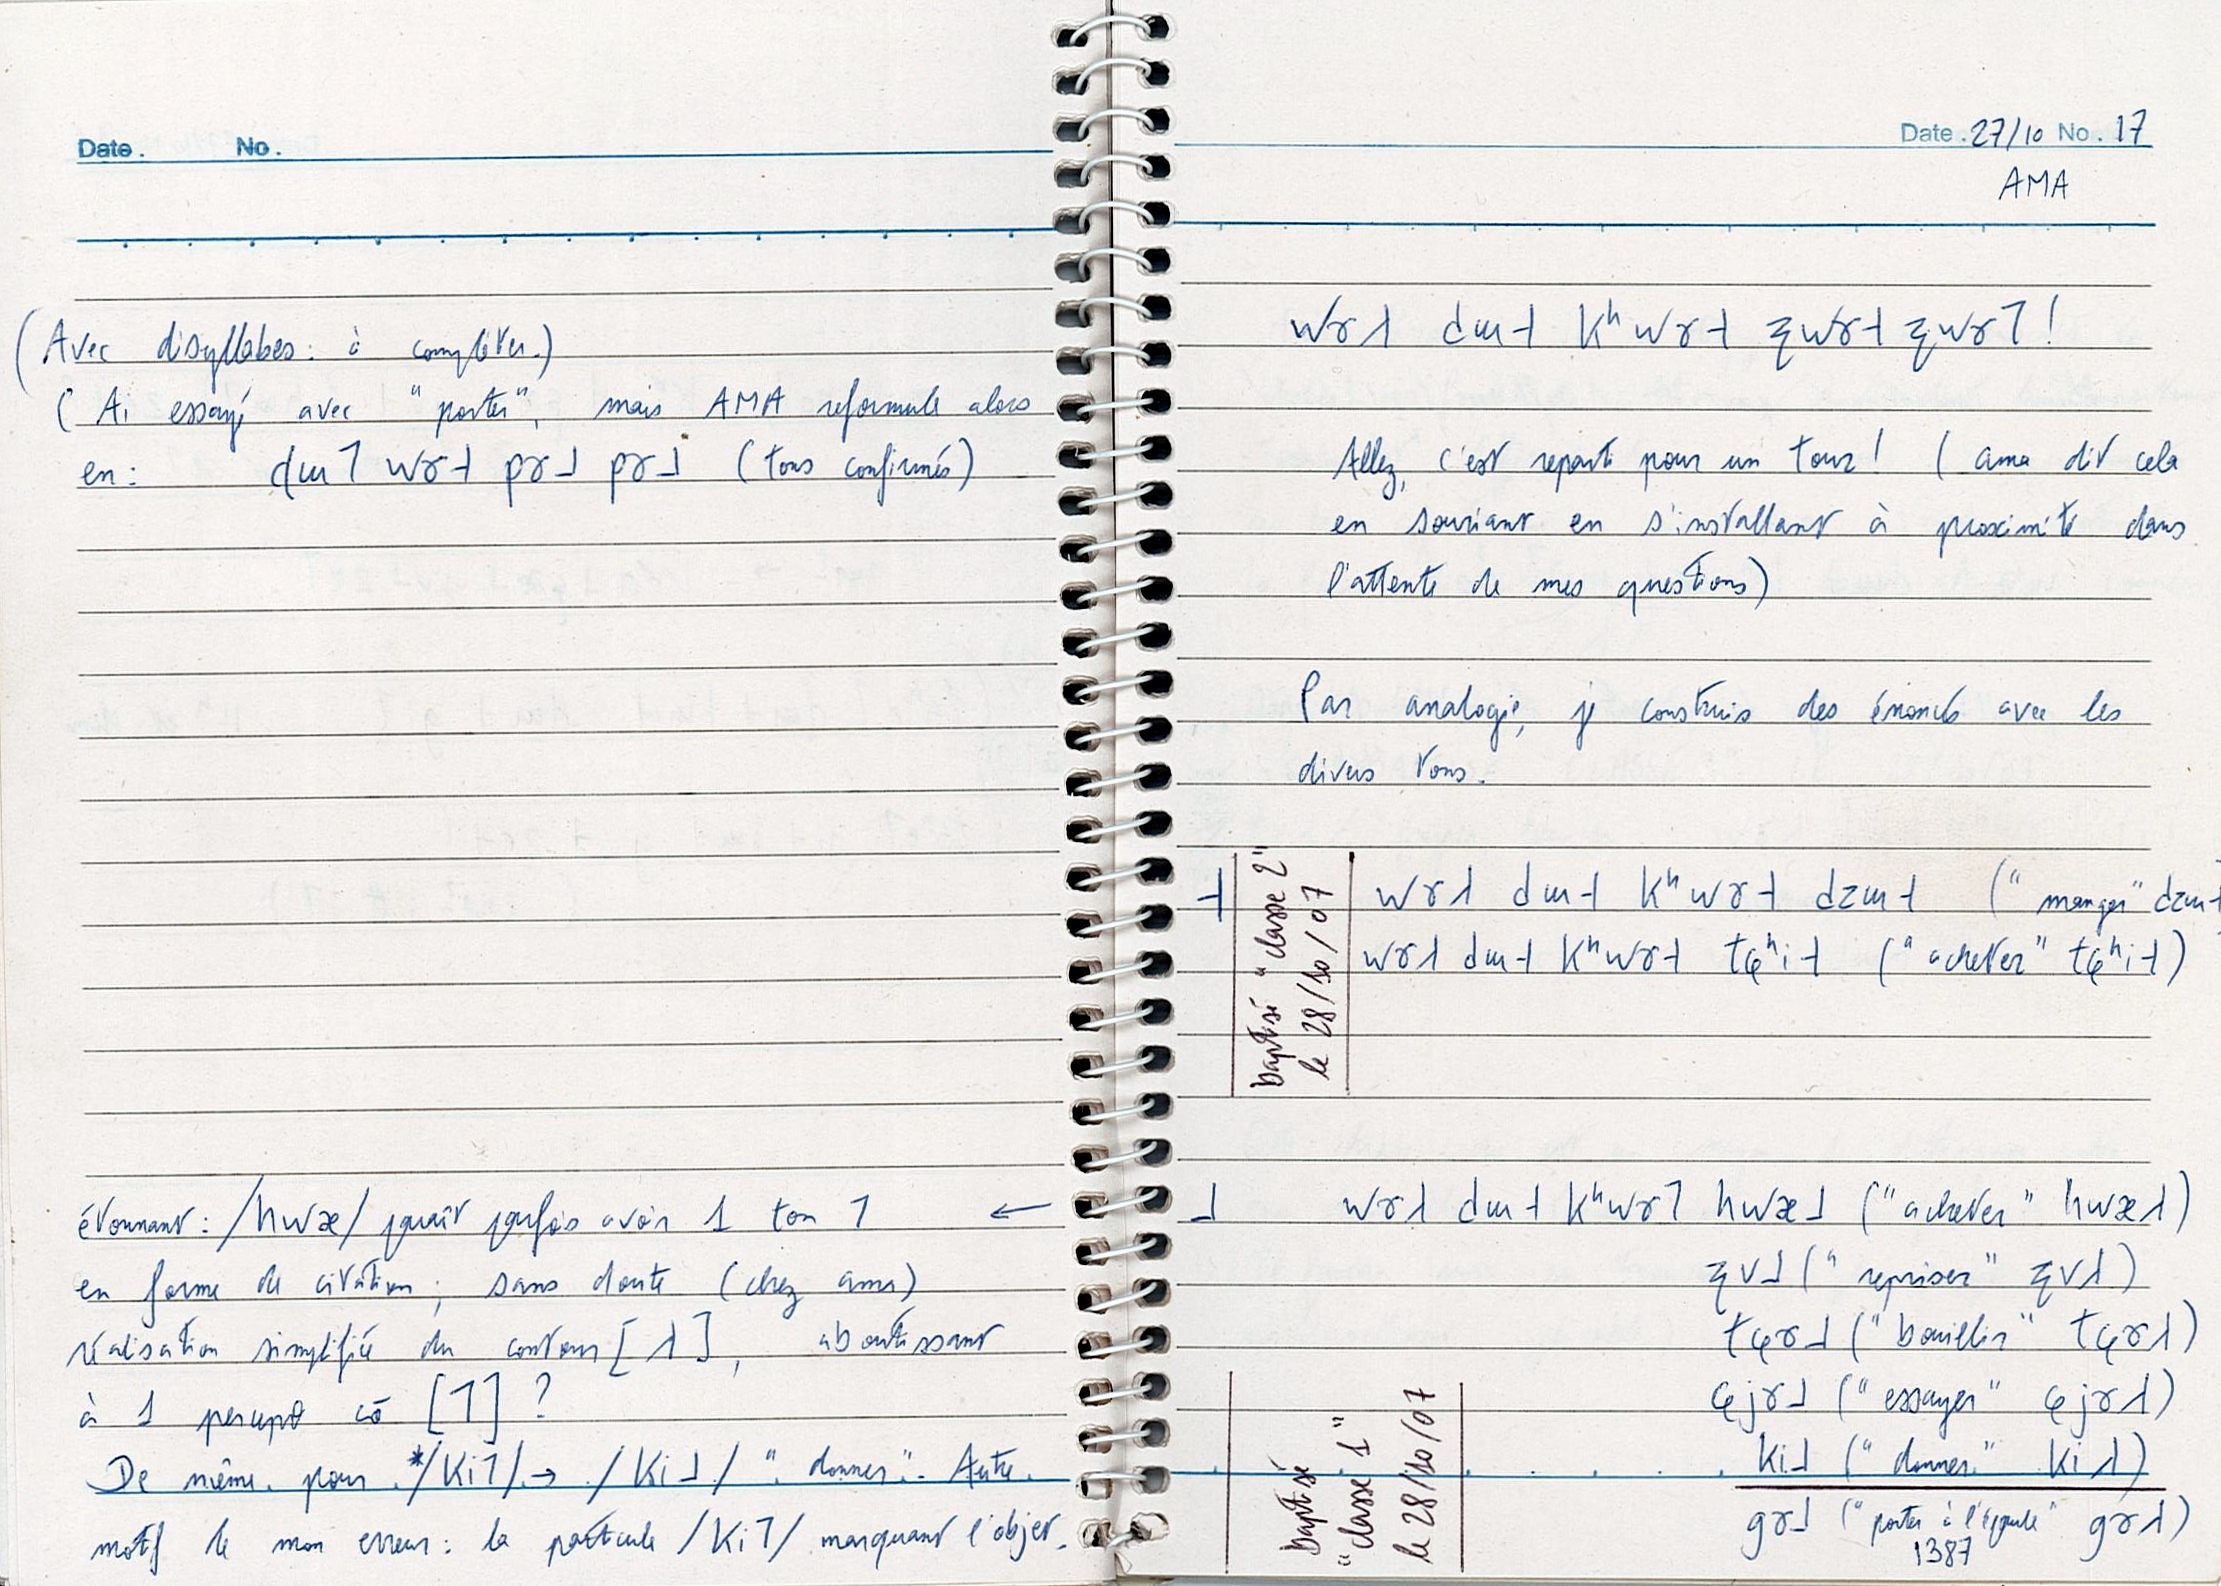 Date. No.
(Avec disyllabes : à compléter.)
( Ai essayé avec "porter", mais AMA reformule alors
en : dɯ˥ wɤ˧ pɤ˩ pɤ˩ (tons confirmés)
étonnant : /hwæ/ paraît parfois avoir 1 ton ˥
en forme de citation ; sans doute (chez ama)
réalisation simplifiée du contour [˩˥], aboutissant
à 1 percept cō [˥] ?
De même pour */ki˥/ → /ki˩/ "donner". Autre
motif de mon erreur : la particule /ki˥/ marquant l'objet.
Date. 27/10 No. 17
AMA
wɤ˩˥ dɯ˧ kʰwɤ˧ ʐwɤ˧ ʐwɤ˥ !
Allez, c'est reparti pour un tour ! ( ama dit cela
en souriant en s'installant à proximité dans
l'attente de mes questions)
Par analogie, je construis des énoncés avec les
divers tons.
˧ wɤ˩˥ dɯ˧ kʰwɤ˧ dzɯ˧ ("manger" dzɯ˧
wɤ˩˥ dɯ˧ kʰwɤ˧ tɕʰi˧ ("acheter" tɕʰi˧)
baptisé "classe 2"
le 28/10/07
← ˩ wɤ˩˥ dɯ˧ kʰwɤ˥ hwæ˩ ("acheter" hwæ˩˥)
ʐv˩ ("repriser" ʐv˩˥)
tɕɤ˩ ("bouillir" tɕɤ˩˥)
ɕjɤ˩ ("essayer" ɕjɤ˩˥)
ki˩ ("donner" ki˩˥)
gɤ˩ ("porter à l'épaule" gɤ˩˥)
1387
baptisé
"classe 1"
le 28/10/07